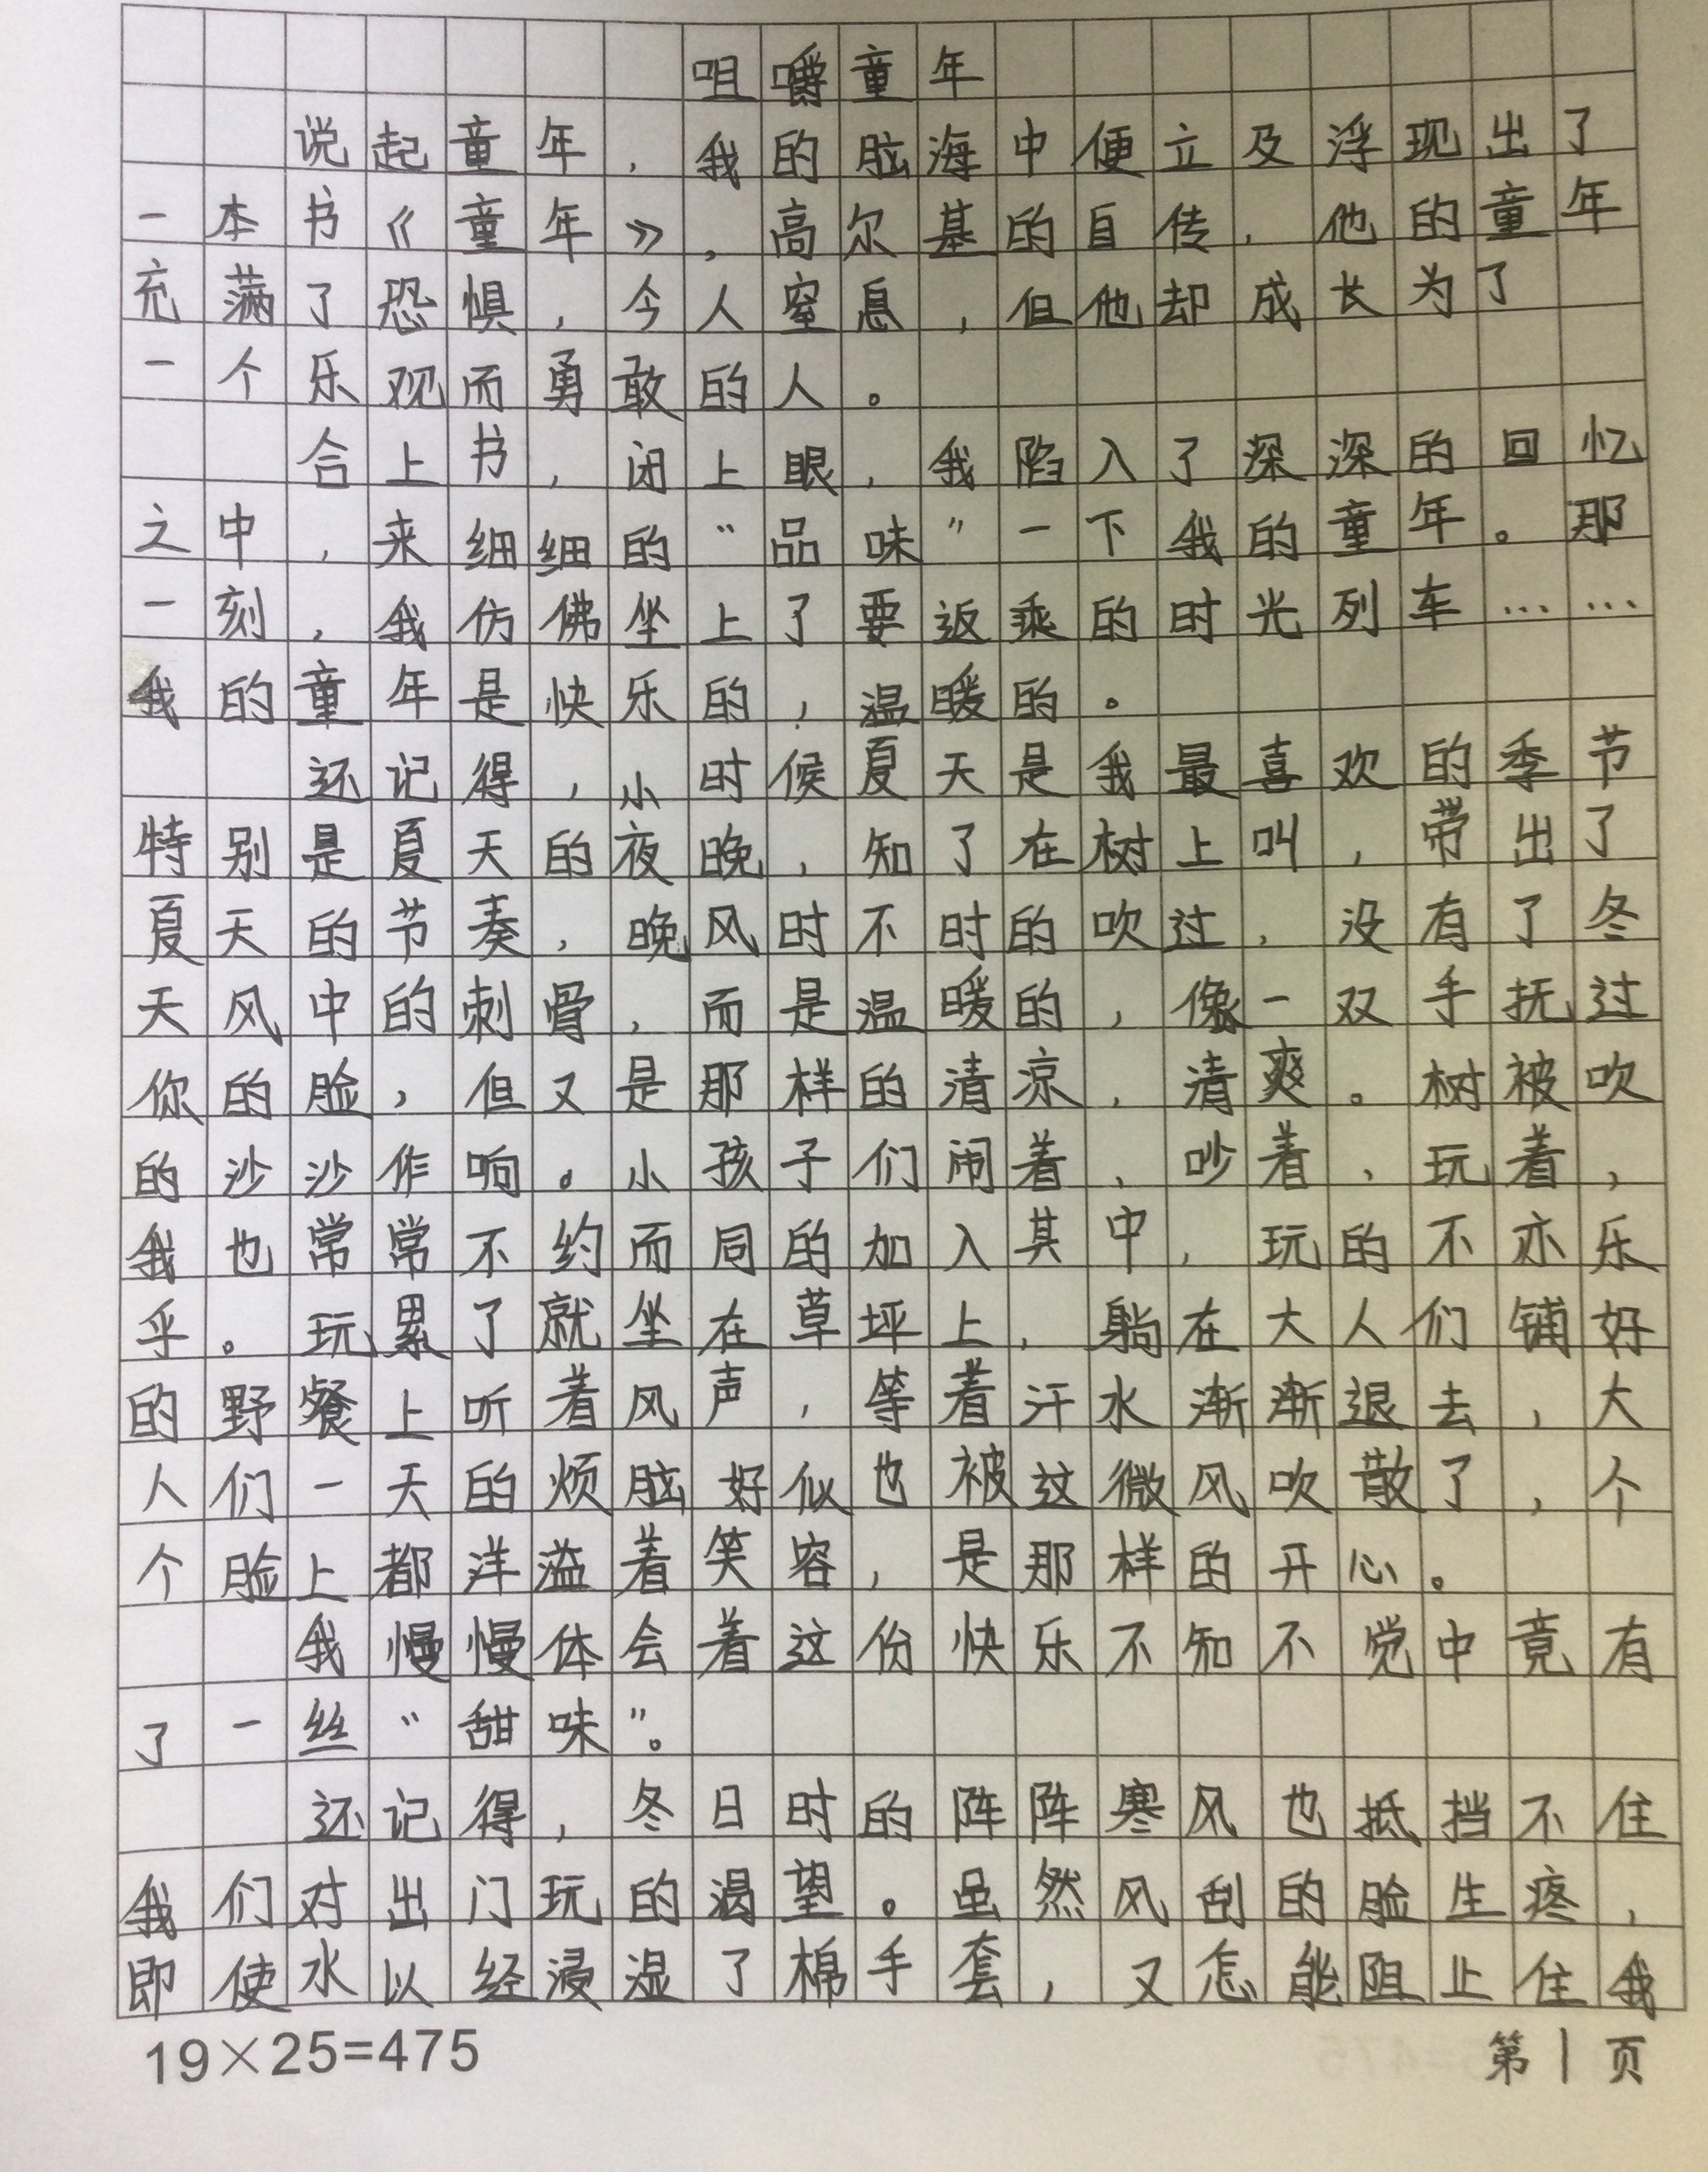 咀嚼童年
说起童年，我的脑海中便立及浮现出了
一本书《童年》，高尔基的自传，他的童年
充满了恐惧，今人窒息，但他却成长为了
一个乐观而勇敢的人。
合上书，闭上眼，我陷入了深深的回忆
之中，来细细的“品味”一下我的童年。那
一刻，我仿佛坐上了要返乘的时光列车……
我的童年是快乐的，温暖的。
还记得，小时候夏天是我最喜欢的季节
特别是夏天的夜晚，知了在树上叫，带出了
夏天的节奏，晚风时不时的吹过，没有了冬
天风中的刺骨，而是温暖的，像一双手抚过
你的脸，但又是那样的清凉，清爽。树被吹
的沙沙作响。小孩子们闹着、吵着、玩着，
我也常常不约而同的加入其中，玩的不亦乐
乎。玩累了就坐在草坪上，躺在大人们铺好
的野餐上听着风声，等着汗水渐渐退去，大
人们一天的烦脑好似也被这微风吹散了，个
个脸上都洋溢着笑容，是那样的开心。
我慢慢体会着这份快乐不知不觉中竟有
了一丝“甜味”。
还记得，冬日时的阵阵寒风也抵挡不住
我们对出门玩的渴望。虽然风刮的脸生疼，
即使水以经浸湿了棉手套，又怎能阻止住我
19×25=475
第1页